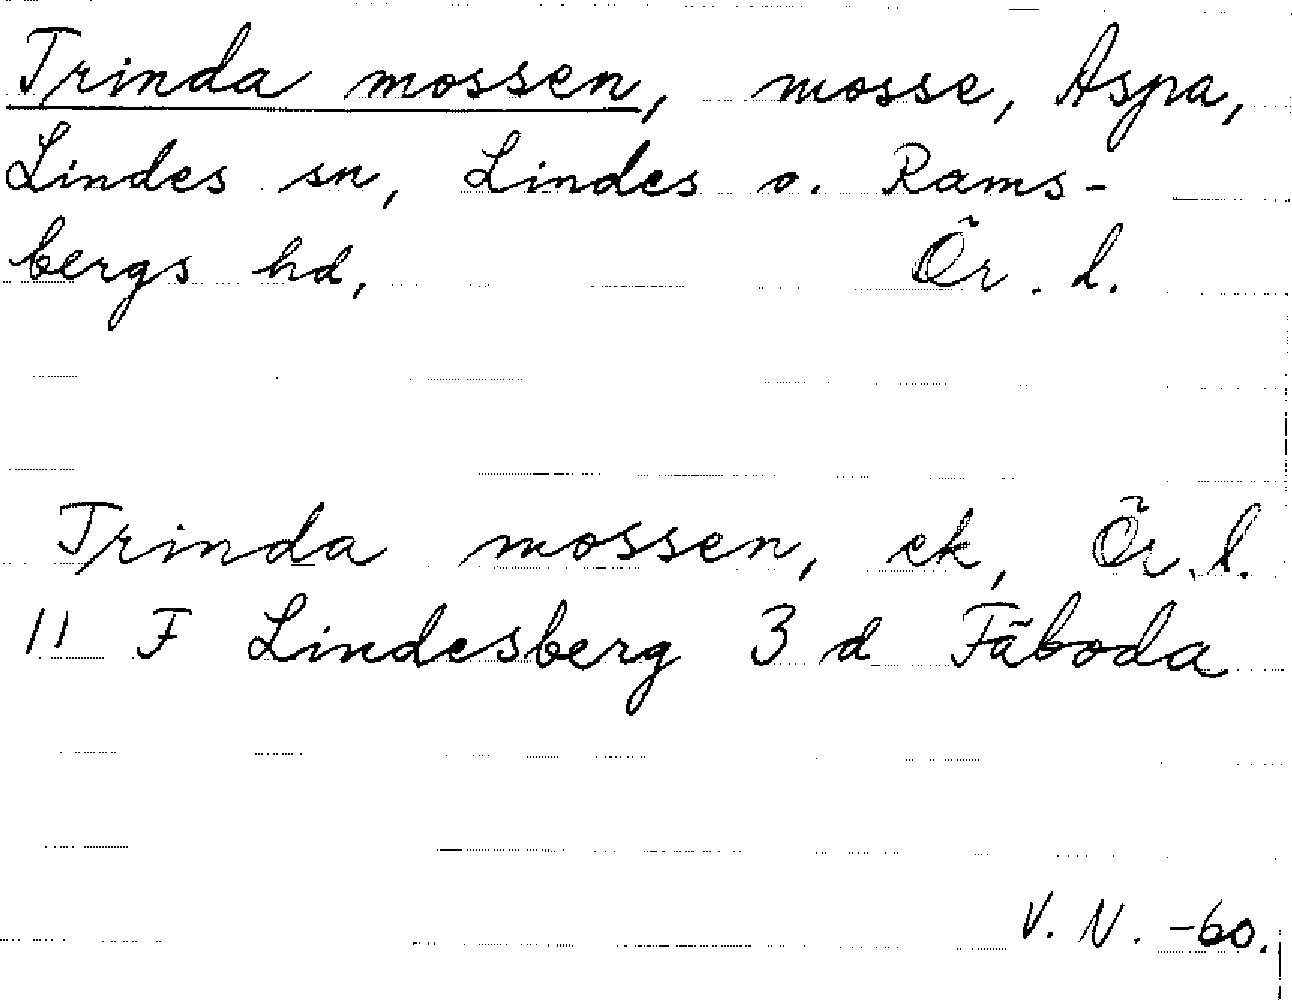 Trinda mossen, mosse, Aspa,
Lindes sn, Lindes o. Rams-
bergs hd, Ör. l.
Trinda mossen, ek, Ör. l.
11 F Lindesberg 3 d Fäboda
V. N. -60.